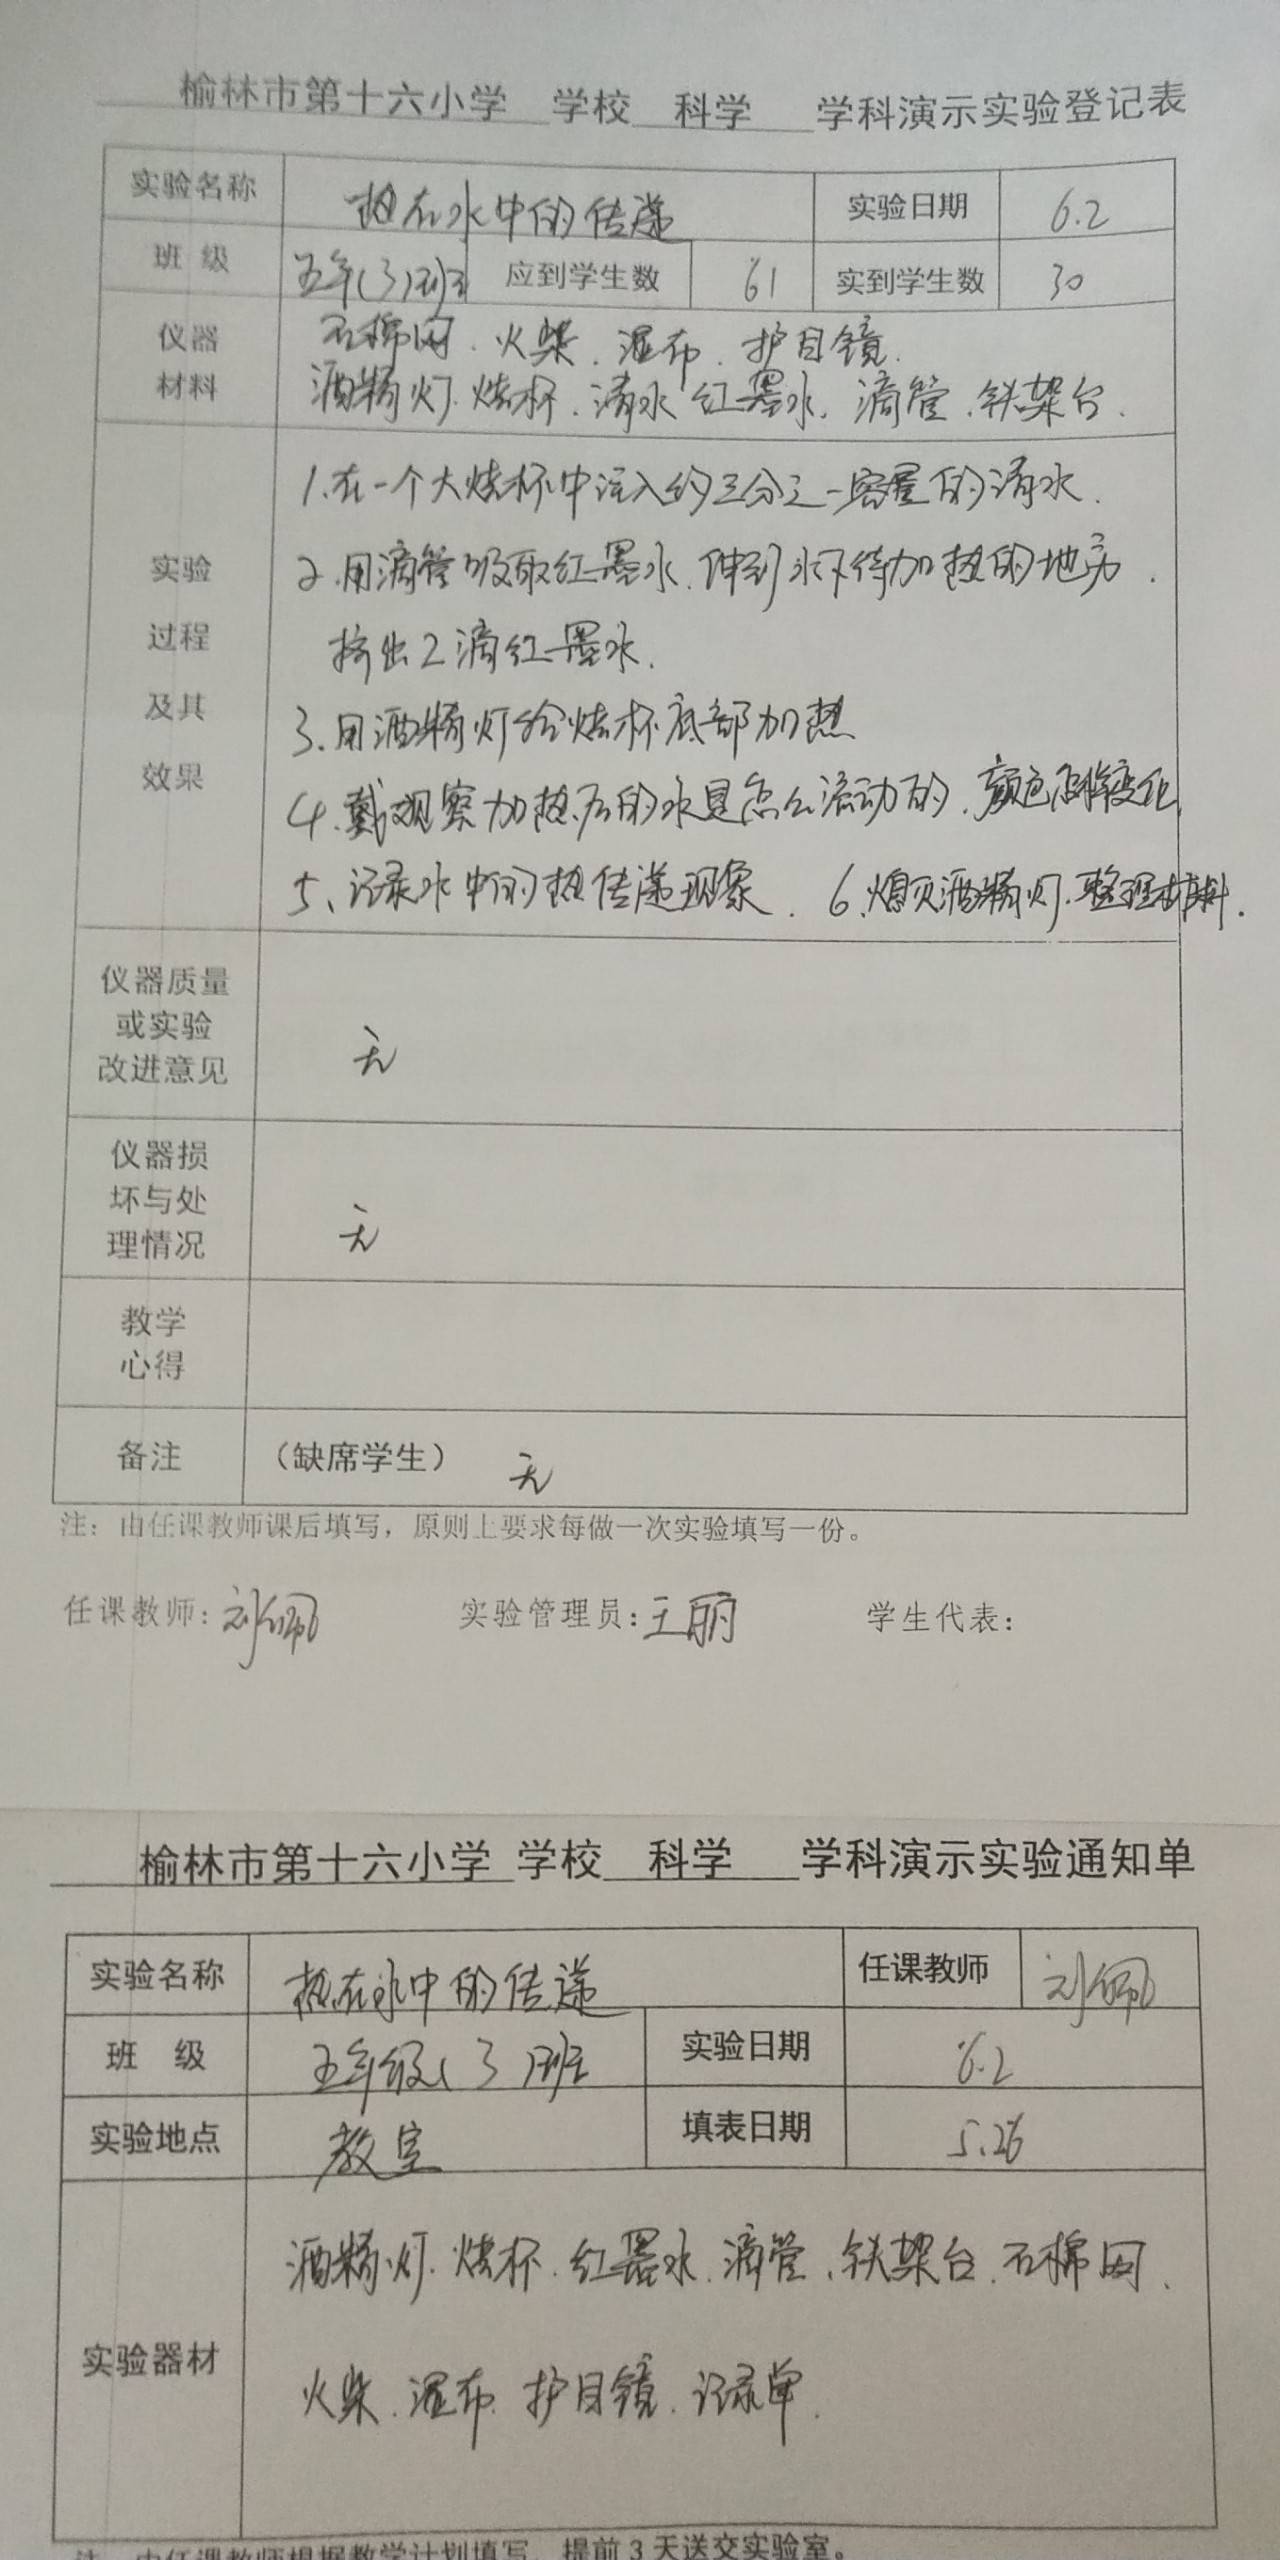 榆林市第十六小学 学校 科学 学科演示实验登记表
实验名称 热在水中的传递 实验日期 6.2
班 级 五年(3)班 应到学生数 61 实到学生数 30
仪器 石棉网、火柴、湿布、护目镜.
材料 酒精灯、烧杯、清水 红墨水、滴管、铁架台.
1.在一个大烧杯中注入约三分之一容量的清水.
实验 2.用滴管吸取红墨水,伸到水下待加热的地方.
过程 挤出2滴红墨水.
及其 3.用酒精灯给烧杯底部加热
效果 4.观察加热后的水是怎么流动的,颜色怎样变化
5、记录水中的热传递现象. 6.熄灭酒精灯.整理材料.
仪器质量
或实验
改进意见
无
仪器损
坏与处
理情况
无
教学
心得
备注 (缺席学生) 无
注:由任课教师课后填写,原则上要求每做一次实验填写一份。
任课教师:刘佩 实验管理员:王丽 学生代表:
榆林市第十六小学 学校 科学 学科演示实验通知单
实验名称 热在水中的传递 任课教师 刘佩
班 级 五年级(3)班 实验日期 6.2
实验地点 教室 填表日期 5.26
酒精灯、烧杯、红墨水、滴管、铁架台、石棉网、
实验器材
火柴、湿布、护目镜、记录单.
注:由任课教师根据教学计划填写,提前3天送交实验室。